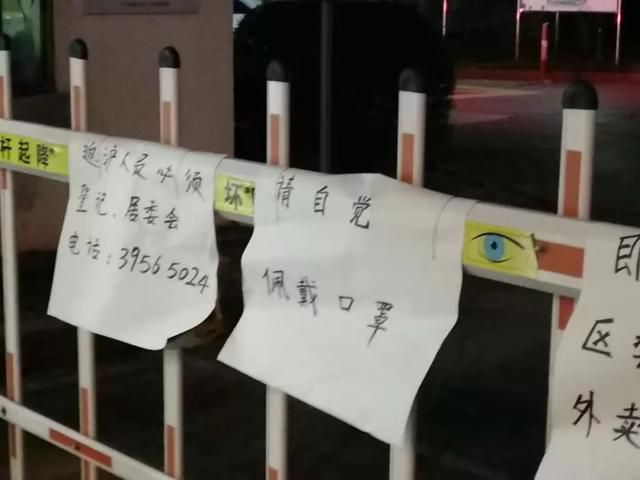 杆起降
返沪人员必须
登记、居委会
电话：39565024
坏
请自觉
佩戴口罩
区
外卖